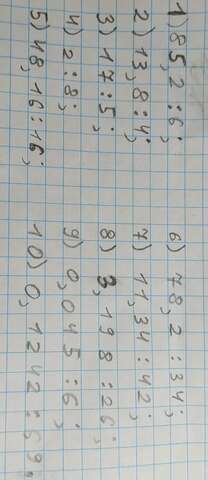 1) 85,2 : 6;
2) 13,8 : 4;
3) 17 : 5;
4) 2 : 8;
5) 48,16 : 16;
6) 78,2 : 34;
7) 11,34 : 42;
8) 3,198 : 26;
9) 0,045 : 6;
10) 0,1242 : 69;